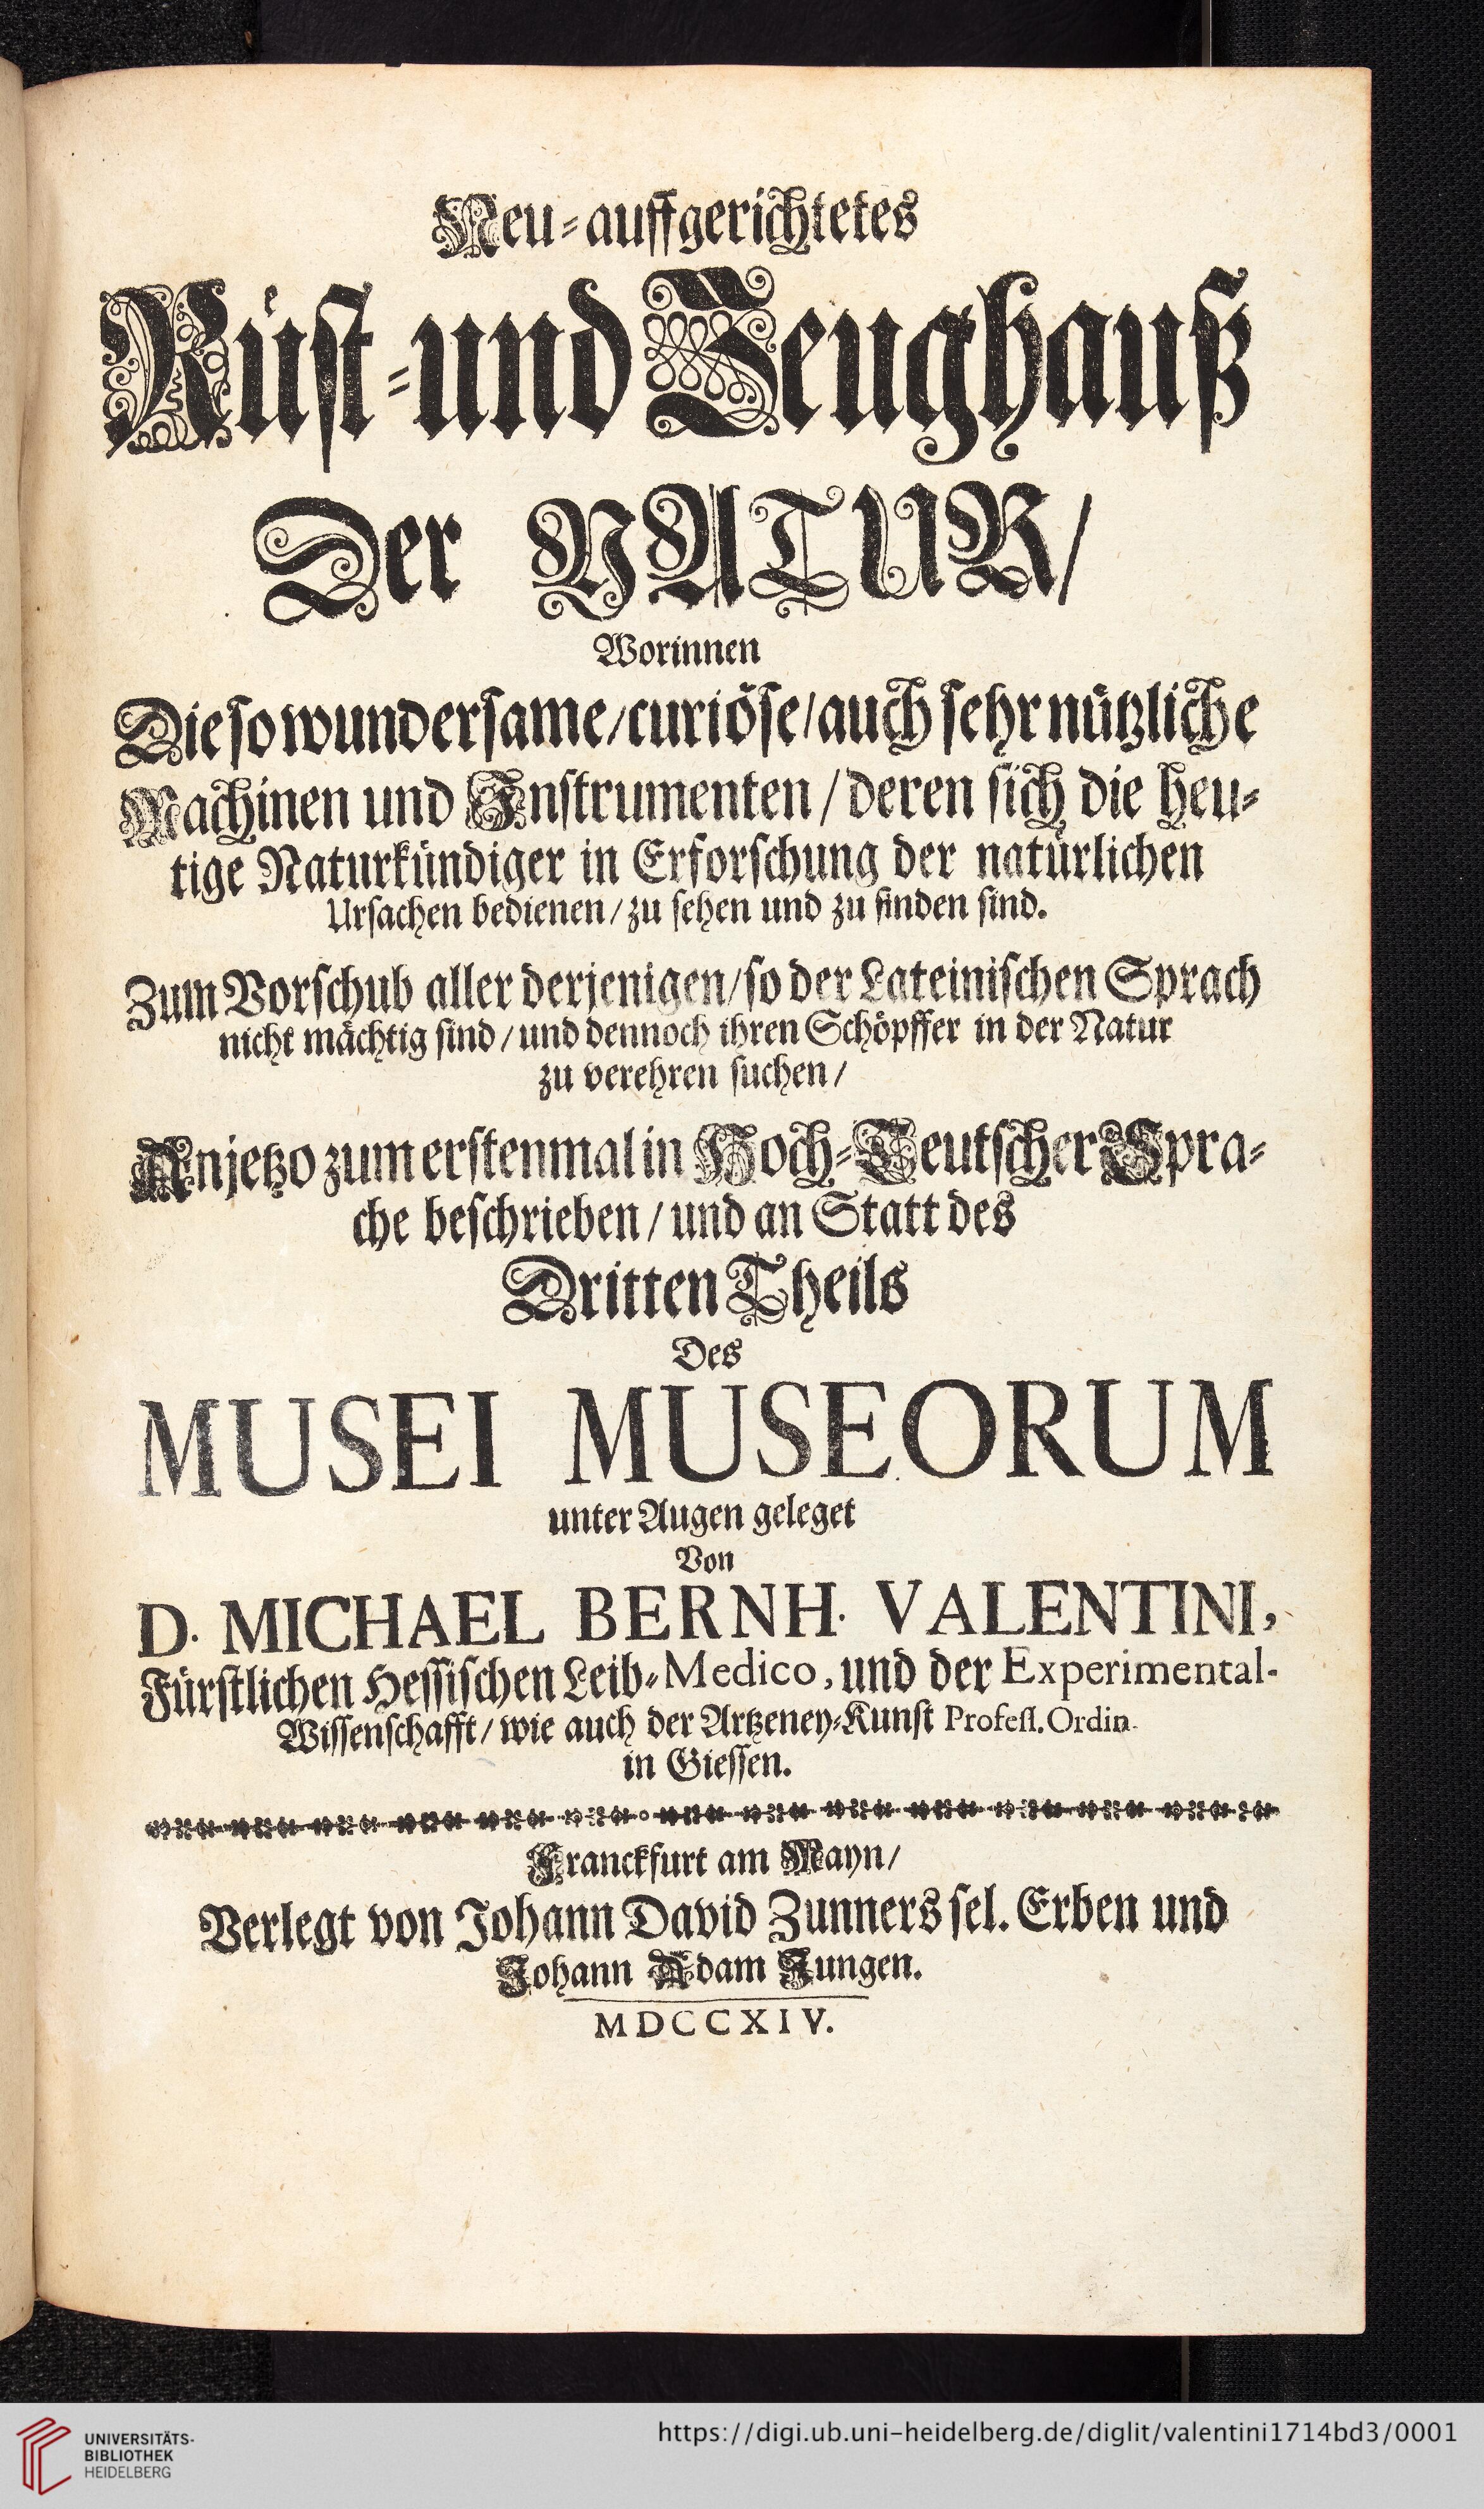 Neu-auffgerichtetes
Rüst-und Zeughauß
Der NATUR/
Worinnen
Die so wundersame/curiöse/auch sehr nützliche
Machinen und Instrumenten/deren sich die heu-
tige Naturkündiger in Erforschung der natürlichen
Ursachen bedienen/zu sehen und zu finden sind.
Zum Vorschub aller derjenigen/so der Lateinischen Sprach
nicht mächtig sind/und dennoch ihren Schöpffer in der Natur
zu verehren suchen/
Anjetzo zum erstenmal in Hoch-Teutscher Spra-
che beschrieben/und an Statt des
Dritten Theils
Des
MUSEI MUSEORUM
unter Augen geleget
Von
D. MICHAEL BERNH. VALENTINI,
Fürstlichen Hessischen Leib-Medico, und der Experimental-
Wissenschafft/wie auch der Artzeney-Kunst Profess. Ordin.
in Giessen.
Franckfurt am Mayn/
Verlegt von Johann David Zunners sel. Erben und
Johann Adam Jungen.
MDCCXIV.
UNIVERSITÄTS-
BIBLIOTHEK
HEIDELBERG
https://digi.ub.uni-heidelberg.de/diglit/valentini1714bd3/0001